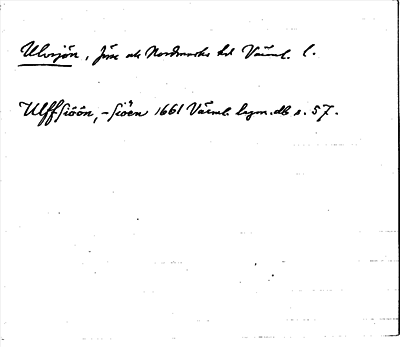 Ulvsjön, Järnsk. o. Nordmarks hd Värml. l.
Ulffsiöön, -siöen 1661 Värml. lagm.db s. 57.